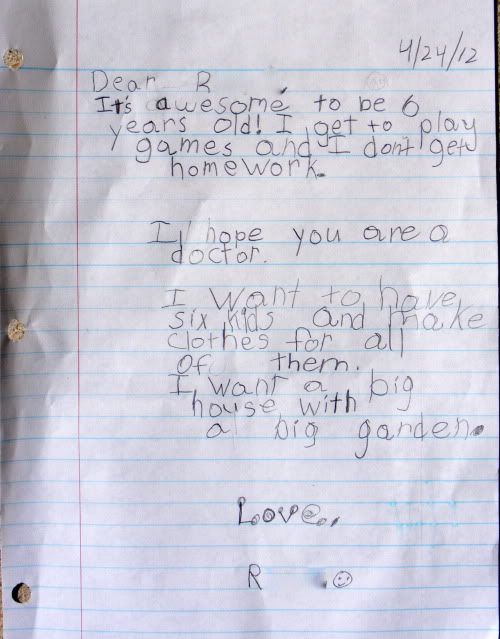 4/24/12
Dear R
It's awesome to be 6
years old! I get to play
games and I don't get
homework.
I hope you are a
doctor.
I want to have
six kids and make
clothes for all
of them.
I want a big
house with
a big garden.
Love,
R